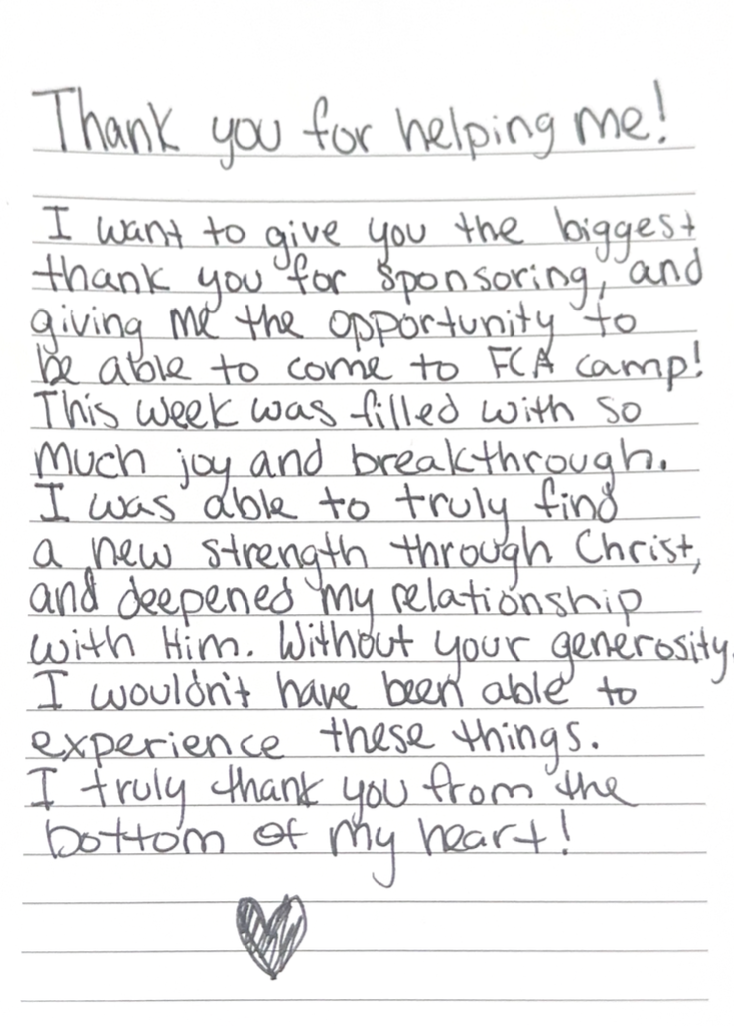 Thank you for helping me!
I want to give you the biggest
thank you for sponsoring, and
giving me the opportunity to
be able to come to FCA camp!
This week was filled with so
much joy and breakthrough.
I was able to truly find
a new strength through Christ,
and deepened my relationship
with Him. Without your generosity,
I wouldn't have been able to
experience these things.
I truly thank you from the
bottom of my heart!